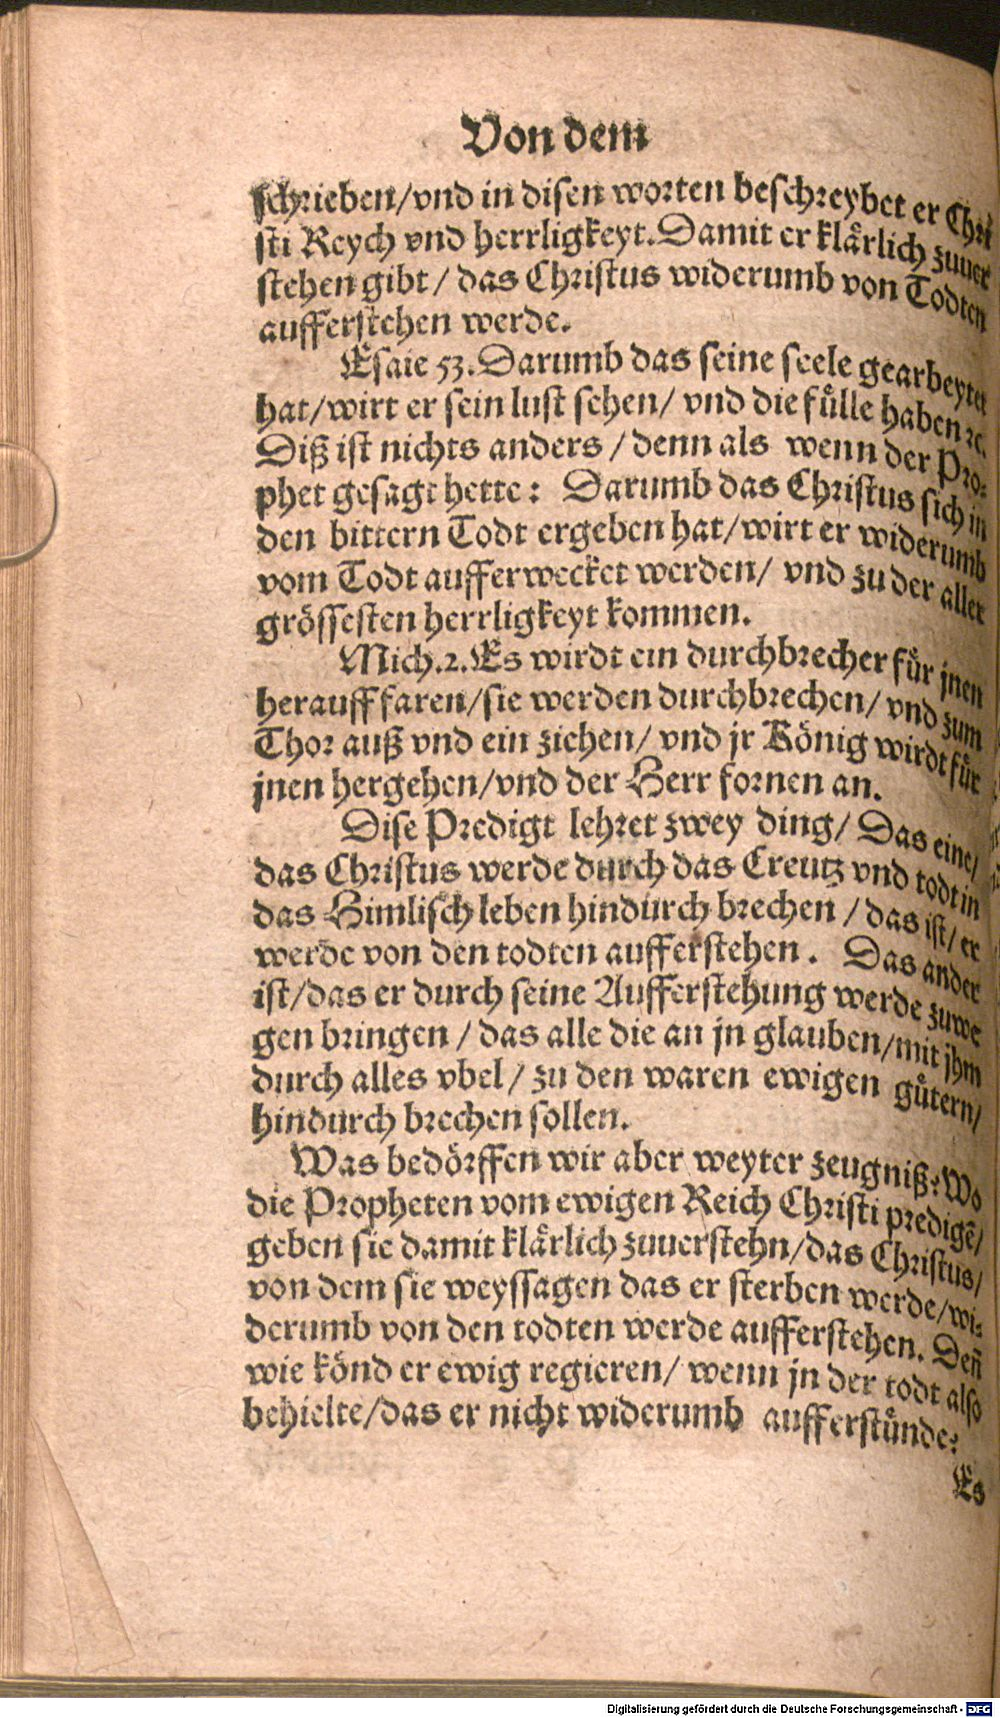 Von dem
schrieben/vnd in disen worten beschreybet er Chri
sti Reych vnd herrligkeyt. Damit er klårlich zuuer
stehen gibt/ das Christus widerumb von Todten
aufferstehen werde.
Esaie 53. Darumb das seine seele gearbeytet
hat/wirt er sein lust sehen/ vnd die fůlle haben ꝛc.
Diß ist nichts anders/denn als wenn der Pro-
phet gesagt hette: Darumb das Christus sich in
den bittern Todt ergeben hat/wirt er widerumb
vom Todt aufferwecket werden/ vnd zu der aller
grössesten herrligkeyt kommen.
Mich. 2. Es wirdt ein durchbrecher fůr jnen
herauff faren/sie werden durchbrechen/ vnd zum
Thor auß vnd ein ziehen/ vnd jr König wirdt fůr
jnen hergehen/vnd der Herr fornen an.
Dise Predigt lehret zwey ding/ Das eine/
das Christus werde durch das Creutz vnd todt in
das Himlisch leben hindurch brechen/das ist/ er
werde von den todten aufferstehen. Das ander
ist/das er durch seine Aufferstehung werde zuwe
gen bringen/das alle die an jn glauben/mit jhm
durch alles vbel/ zu den waren ewigen gůtern/
hindurch brechen sollen.
Was bedörffen wir aber weyter zeugniß? Wo
die Propheten vom ewigen Reich Christi predigē/
geben sie damit klårlich zuuerstehn/das Christus/
von dem sie weyssagen das er sterben werde/wi-
derumb von den todten werde aufferstehen. Deñ
wie könd er ewig regieren/ wenn jn der todt also
behielte/das er nicht widerumb aufferstůnde?
Es
Digitalisierung gefördert durch die Deutsche Forschungsgemeinschaft - DFG